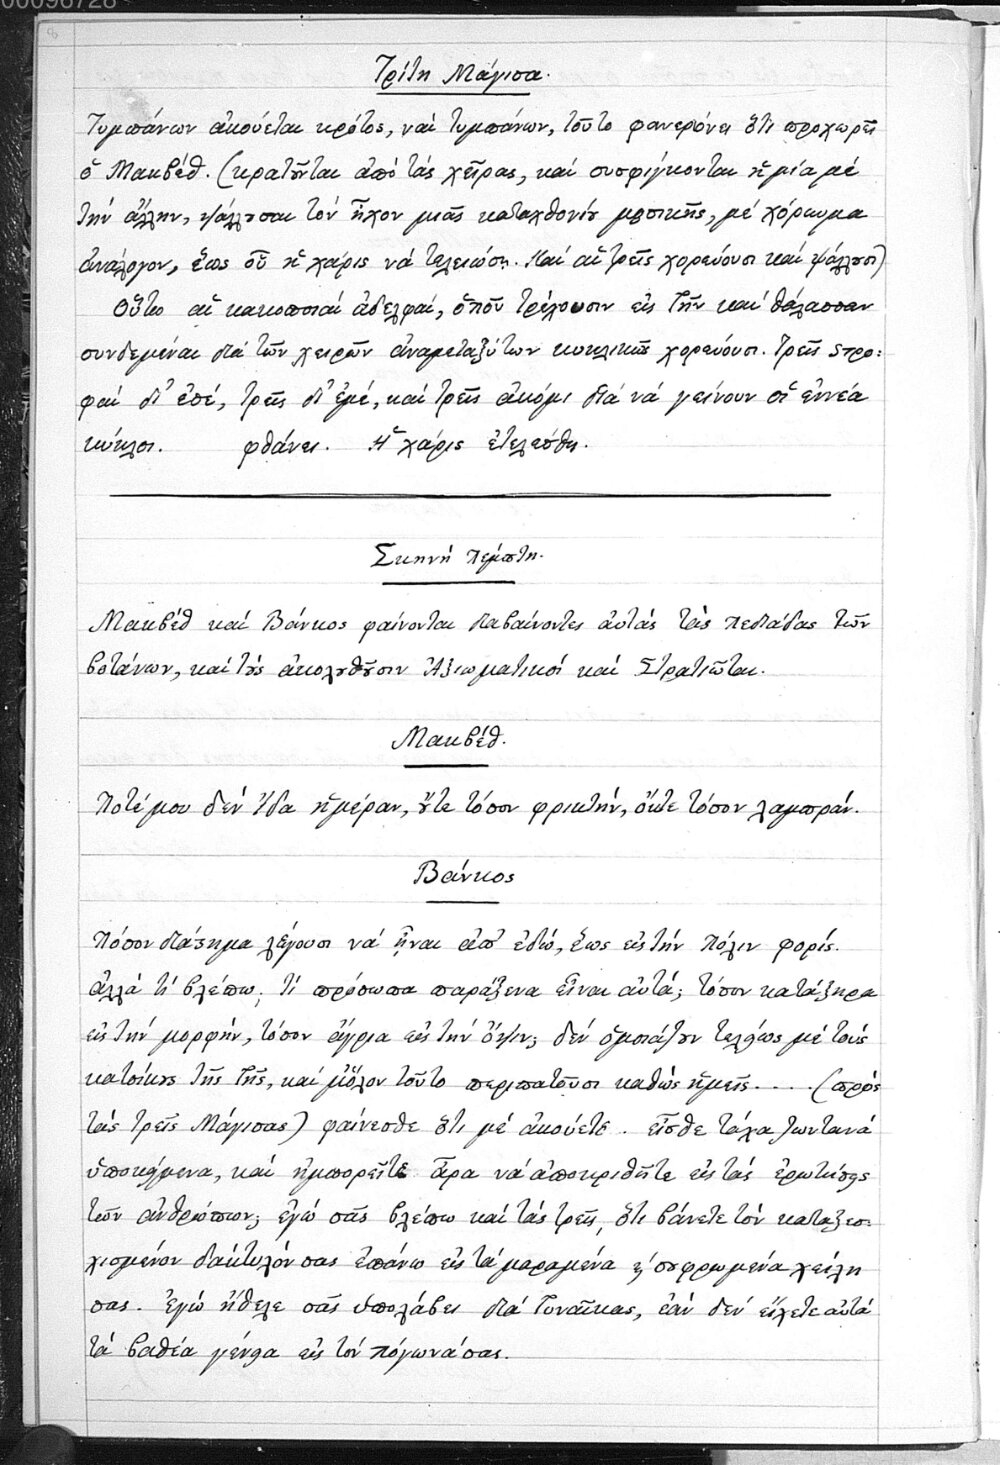 00096728
8
Τρίτη Μάγισα.
Τυμπάνων ἀκούεται κρότος, ναί τυμπάνων, τοῦτο φανερόνει ὅτι προχωρεῖ
ὁ Μακβέθ. (κρατοῦνται ἀπό τάς χεῖρας, καί συσφίγκονται ἡ μία μέ
τήν ἄλλην, ψάλλουσαι τόν ἦχον μιᾶς καταχθονίου μουσικῆς, μέ χόρευμα
ἀνάλογον, ἕως οὗ ἡ χάρις νά τελειώσῃ. Καί αἱ τρεῖς χορεύουσι καί ψάλλουσι)
Οὕτω αἱ κακοποιαί ἀδελφαί, ὁποῦ τρέχουσιν εἰς Γῆν καί θάλασσαν
συνδεμέναι διά τῶν χειρῶν ἀναμεταξύ των κυκλικῶς χορεύουσι. τρεῖς στρο:
φαί δι' ἐσέ, τρεῖς δι' ἐμέ, καί τρεῖς ἀκόμι διά νά γείνουν οἱ ἐννέα
κύκλοι. φθάνει. Ἡ χάρις ἐτελέσθη.
Σκηνή Πέμπτη.
Μακβέθ καί Βάνκος φαίνονται διαβαίνοντες αὐτάς τάς πεδιάδας τῶν
βοτάνων, καί τούς ἀκολουθοῦσιν Ἀξιωματικοί καί Στρατιῶται.
Μακβέθ.
Ποτέ μου δέν ἴδα ἡμέραν, οὔτε τόσον φρικτήν, οὔτε τόσον λαμπράν.
Βάνκος
Πόσον διάστημα λέγουσι νά ᾖναι ἀπ' ἐδώ, ἕως εἰς τήν Πόλιν φορίς.
ἀλλά τί βλέπω; τί πρόσωπα παράξενα εἶναι αὐτά; τόσον κατάξηρα
εἰς τήν μορφήν, τόσον ἄγρια εἰς τήν ὄψιν; δέν ὁμοιάζουν τελείως μέ τούς
κατοίκους τῆς Γῆς, καί μ' ὅλον τοῦτο περιπατοῦσι καθώς ἡμεῖς..... (πρός
τάς τρεῖς Μάγισας) φαίνεσθε ὅτι μέ ἀκούετε. εἶσθε τάχα ζωντανά
ὑποκείμενα, καί ἠμπορεῖτε ἆρα νά ἀποκριθῆτε εἰς τάς ἐρωτήσεις
τῶν ἀνθρώπων; ἐγώ σᾶς βλέπω καί τάς τρεῖς, ὅτι βάνετε τόν καταξεσ-
χισμένον δάκτυλόν σας ἐπάνω εἰς τά μαραμένα καί σουφρωμένα χείλη
σας. Ἐγώ ἤθελε σᾶς ὑπολάβει διά Γυναῖκας, ἐάν δέν εἴχετε αὐτά
τά βαθέα γένεια εἰς τόν πόγωνά σας.